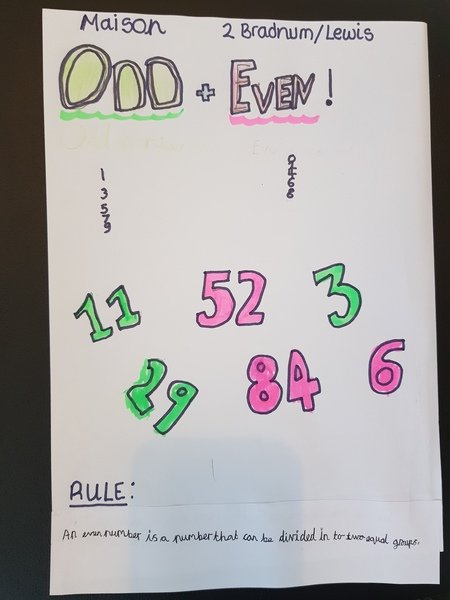 Maison 2 Bradnum/Lewis
ODD + EVEN!
1
3
5
7
9
0
2
4
6
8
11 52 3
29 84 6
RULE:
An even number is a number that can be divided in to two equal groups.